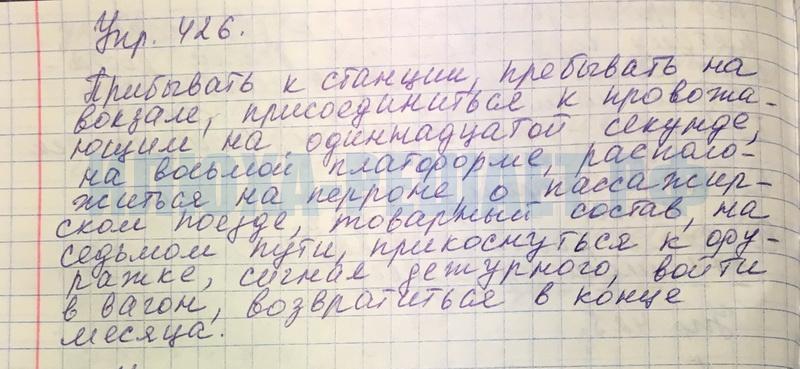 Упр. 426.
Прибывать к станции, пребывать на
вокзале, присоединиться к провожа-
ющим на одиннадцатой секунде,
на восьмой платформе, располо-
житься на перроне, о пассажир-
ском поезде, товарный состав, на
седьмом пути, прикоснуться к фу-
ражке, сигнал дежурного, войти
в вагон, возвратиться в конце
месяца.